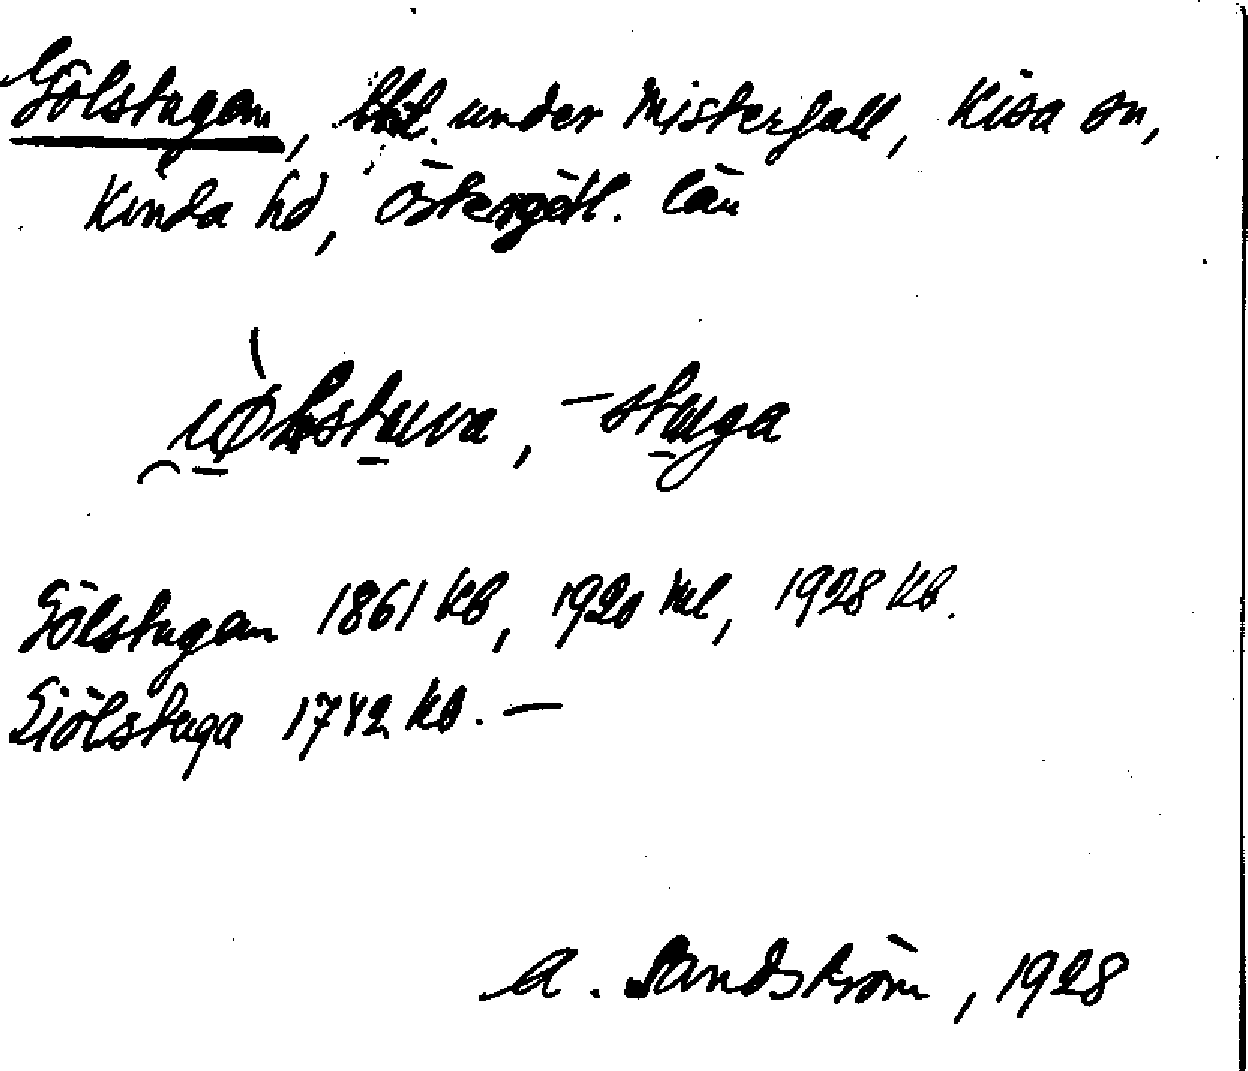 Gölstugan, under Misterfall, Kisa sn,
Kinda hd, Östergötl. län
-stuga
Gölstugan 1861 kb, 1920 , 1928 kb.
Giölstuga 1742 kb. —
A. Sandström, 1928